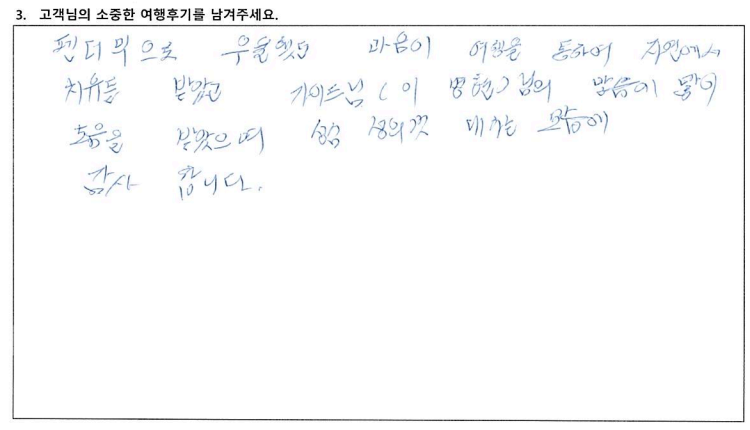 3. 고객님의 소중한 여행후기를 남겨주세요.
펜더믹으로 우울했던 마음이 여행을 통하여 자연에서
치유를 받았고 가이드님(이병현)님의 말씀에 많이
도움을 받았으며 성심 성의껏 대하는 모습에
감사 합니다.